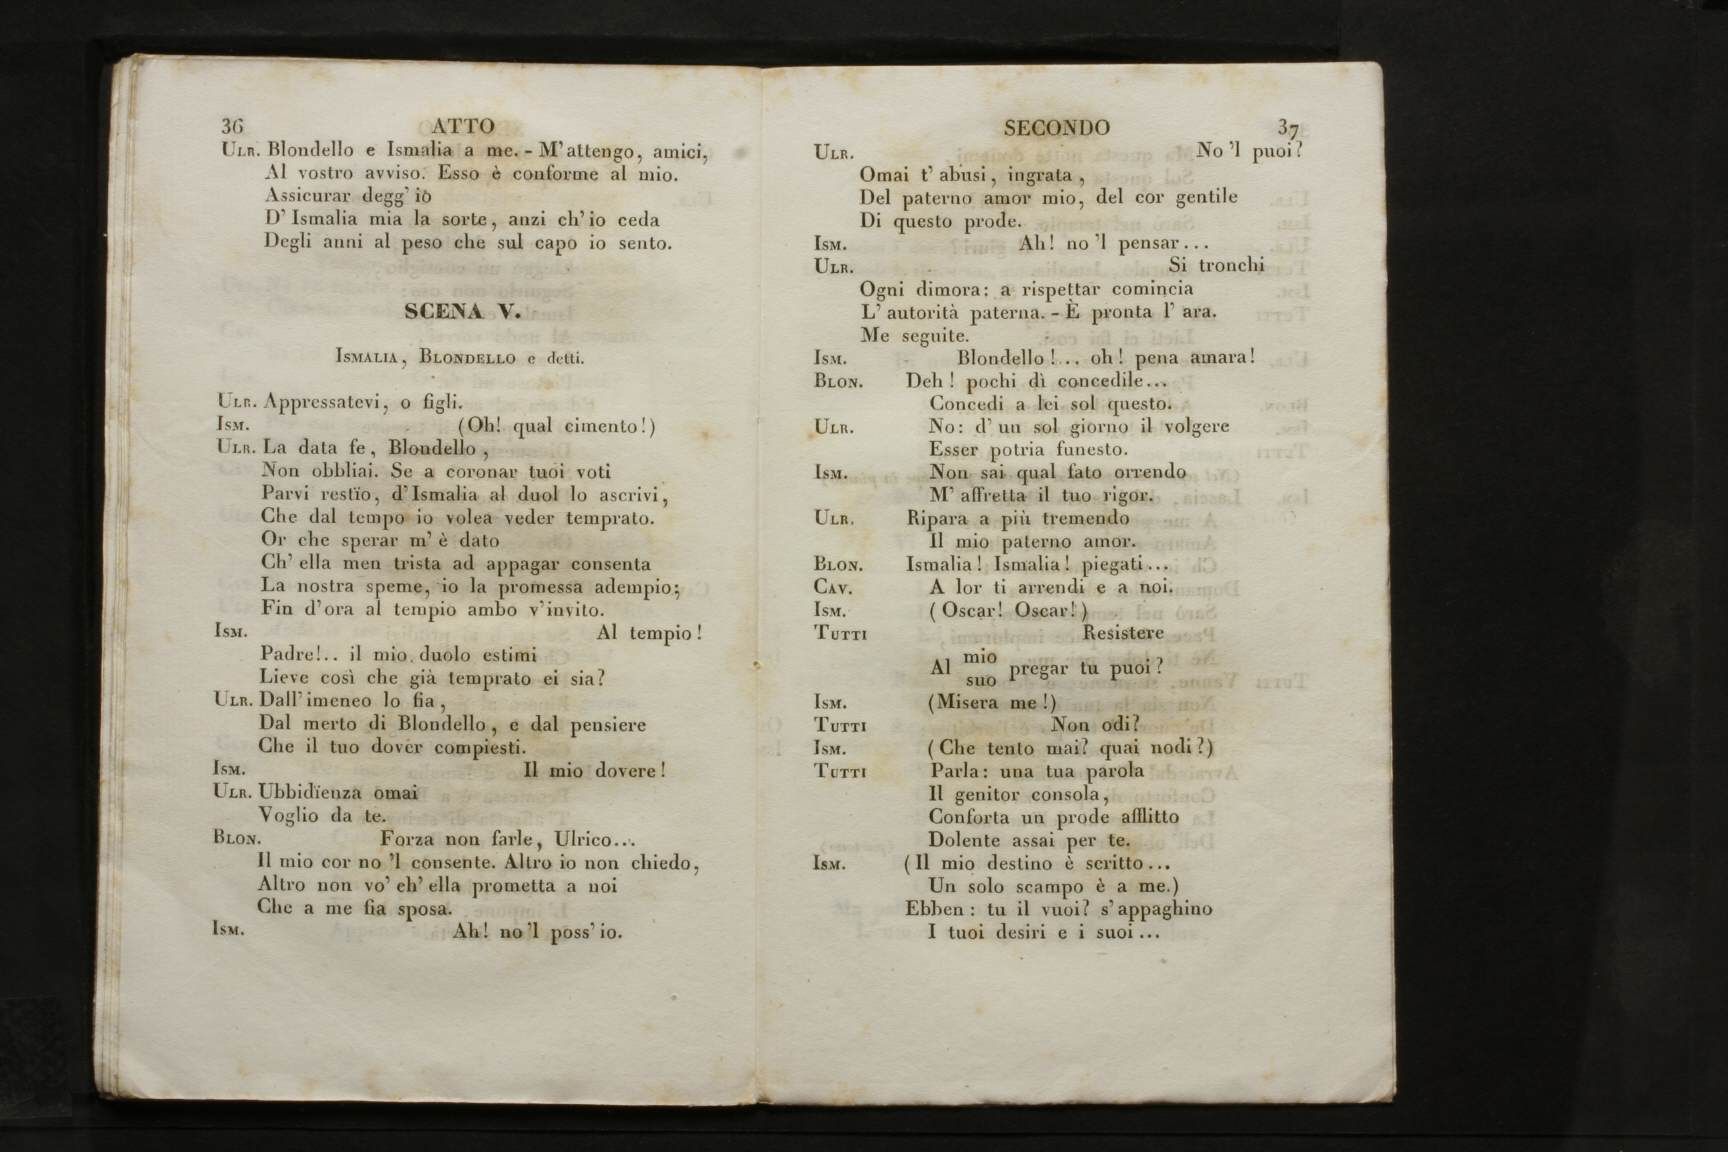 36 ATTO
Ulr. Blondello e Ismalia a me. - M' attengo, amici,
Al vostro avviso. Esso è conforme al mio.
Assicurar degg' io
D' Ismalia mia la sorte, anzi ch' io ceda
Degli anni al peso che sul capo io sento.
SCENA V.
Ismalia, Blondello e detti.
Ulr. Appressatevi, o figli.
Ism. (Oh! qual cimento!)
Ulr. La data fe, Blondello,
Non obbliai. Se a coronar tuoi voti
Parvi restïo, d' Ismalia al duol lo ascrivi,
Che dal tempo io volea veder temprato.
Or che sperar m' è dato
Ch' ella men trista ad appagar consenta
La nostra speme, io la promessa adempio;
Fin d' ora al tempio ambo v' invito.
Ism. Al tempio!
Padre!.. il mio duolo estimi
Lieve così che già temprato ei sia?
Ulr. Dall' imeneo lo fia,
Dal merto di Blondello, e dal pensiere
Che il tuo dover compiesti.
Ism. Il mio dovere!
Ulr. Ubbidïenza omai
Voglio da te.
Blon. Forza non farle, Ulrico...
Il mio cor no 'l consente. Altro io non chiedo,
Altro non vo' ch' ella prometta a noi
Che a me fia sposa.
Ism. Ah! no 'l poss' io.
SECONDO 37
Ulr. No 'l puoi?
Omai t' abusi, ingrata,
Del paterno amor mio, del cor gentile
Di questo prode.
Ism. Ah! no 'l pensar...
Ulr. Si tronchi
Ogni dimora: a rispettar comincia
L' autorità paterna. - È pronta l' ara.
Me seguite.
Ism. Blondello!... oh! pena amara!
Blon. Deh! pochi dì concedile...
Concedi a lei sol questo.
Ulr. No: d' un sol giorno il volgere
Esser potria funesto.
Ism. Non sai qual fato orrendo
M' affretta il tuo rigor.
Ulr. Ripara a più tremendo
Il mio paterno amor.
Blon. Ismalia! Ismalia! piegati...
Cav. A lor ti arrendi e a noi.
Ism. (Oscar! Oscar!)
Tutti Resistere
Al mio
suo pregar tu puoi?
Ism. (Misera me!)
Tutti Non odi?
Ism. (Che tento mai? quai nodi?)
Tutti Parla: una tua parola
Il genitor consola,
Conforta un prode afflitto
Dolente assai per te.
Ism. (Il mio destino è scritto...
Un solo scampo è a me.)
Ebben: tu il vuoi? s' appaghino
I tuoi desiri e i suoi...